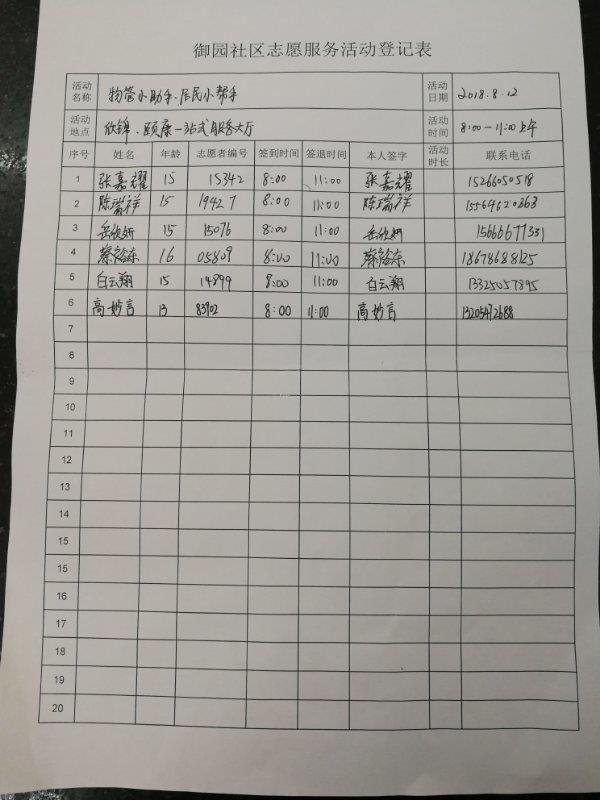 御园社区志愿服务活动登记表
活动名称 物管小助手.居民小帮手 活动日期 2018.8.12
活动地点 欣锦.颐康一站式服务大厅 活动时间 8:00-11:00上午
序号 姓名 年龄 志愿者编号 签到时间 签退时间 本人签字 活动时长 联系电话
1 张嘉耀 15 15342 8:00 11:00 张嘉耀 15266050518
2 陈瑞祥 15 19427 8:00 11:00 陈瑞祥
3 岳欣妍 15 15076 8:00 11:00 岳欣妍 15666677331
4 蔡裕东 16 05809 8:00 11:00 蔡裕东 18678688125
5 白云翔 15 14899 8:00 11:00 白云翔 13325057895
6 高妙言 13 83902 8:00 11:00 高妙言 13205472688
7
8
9
10
11
12
13
14
15
15
16
17
18
19
20